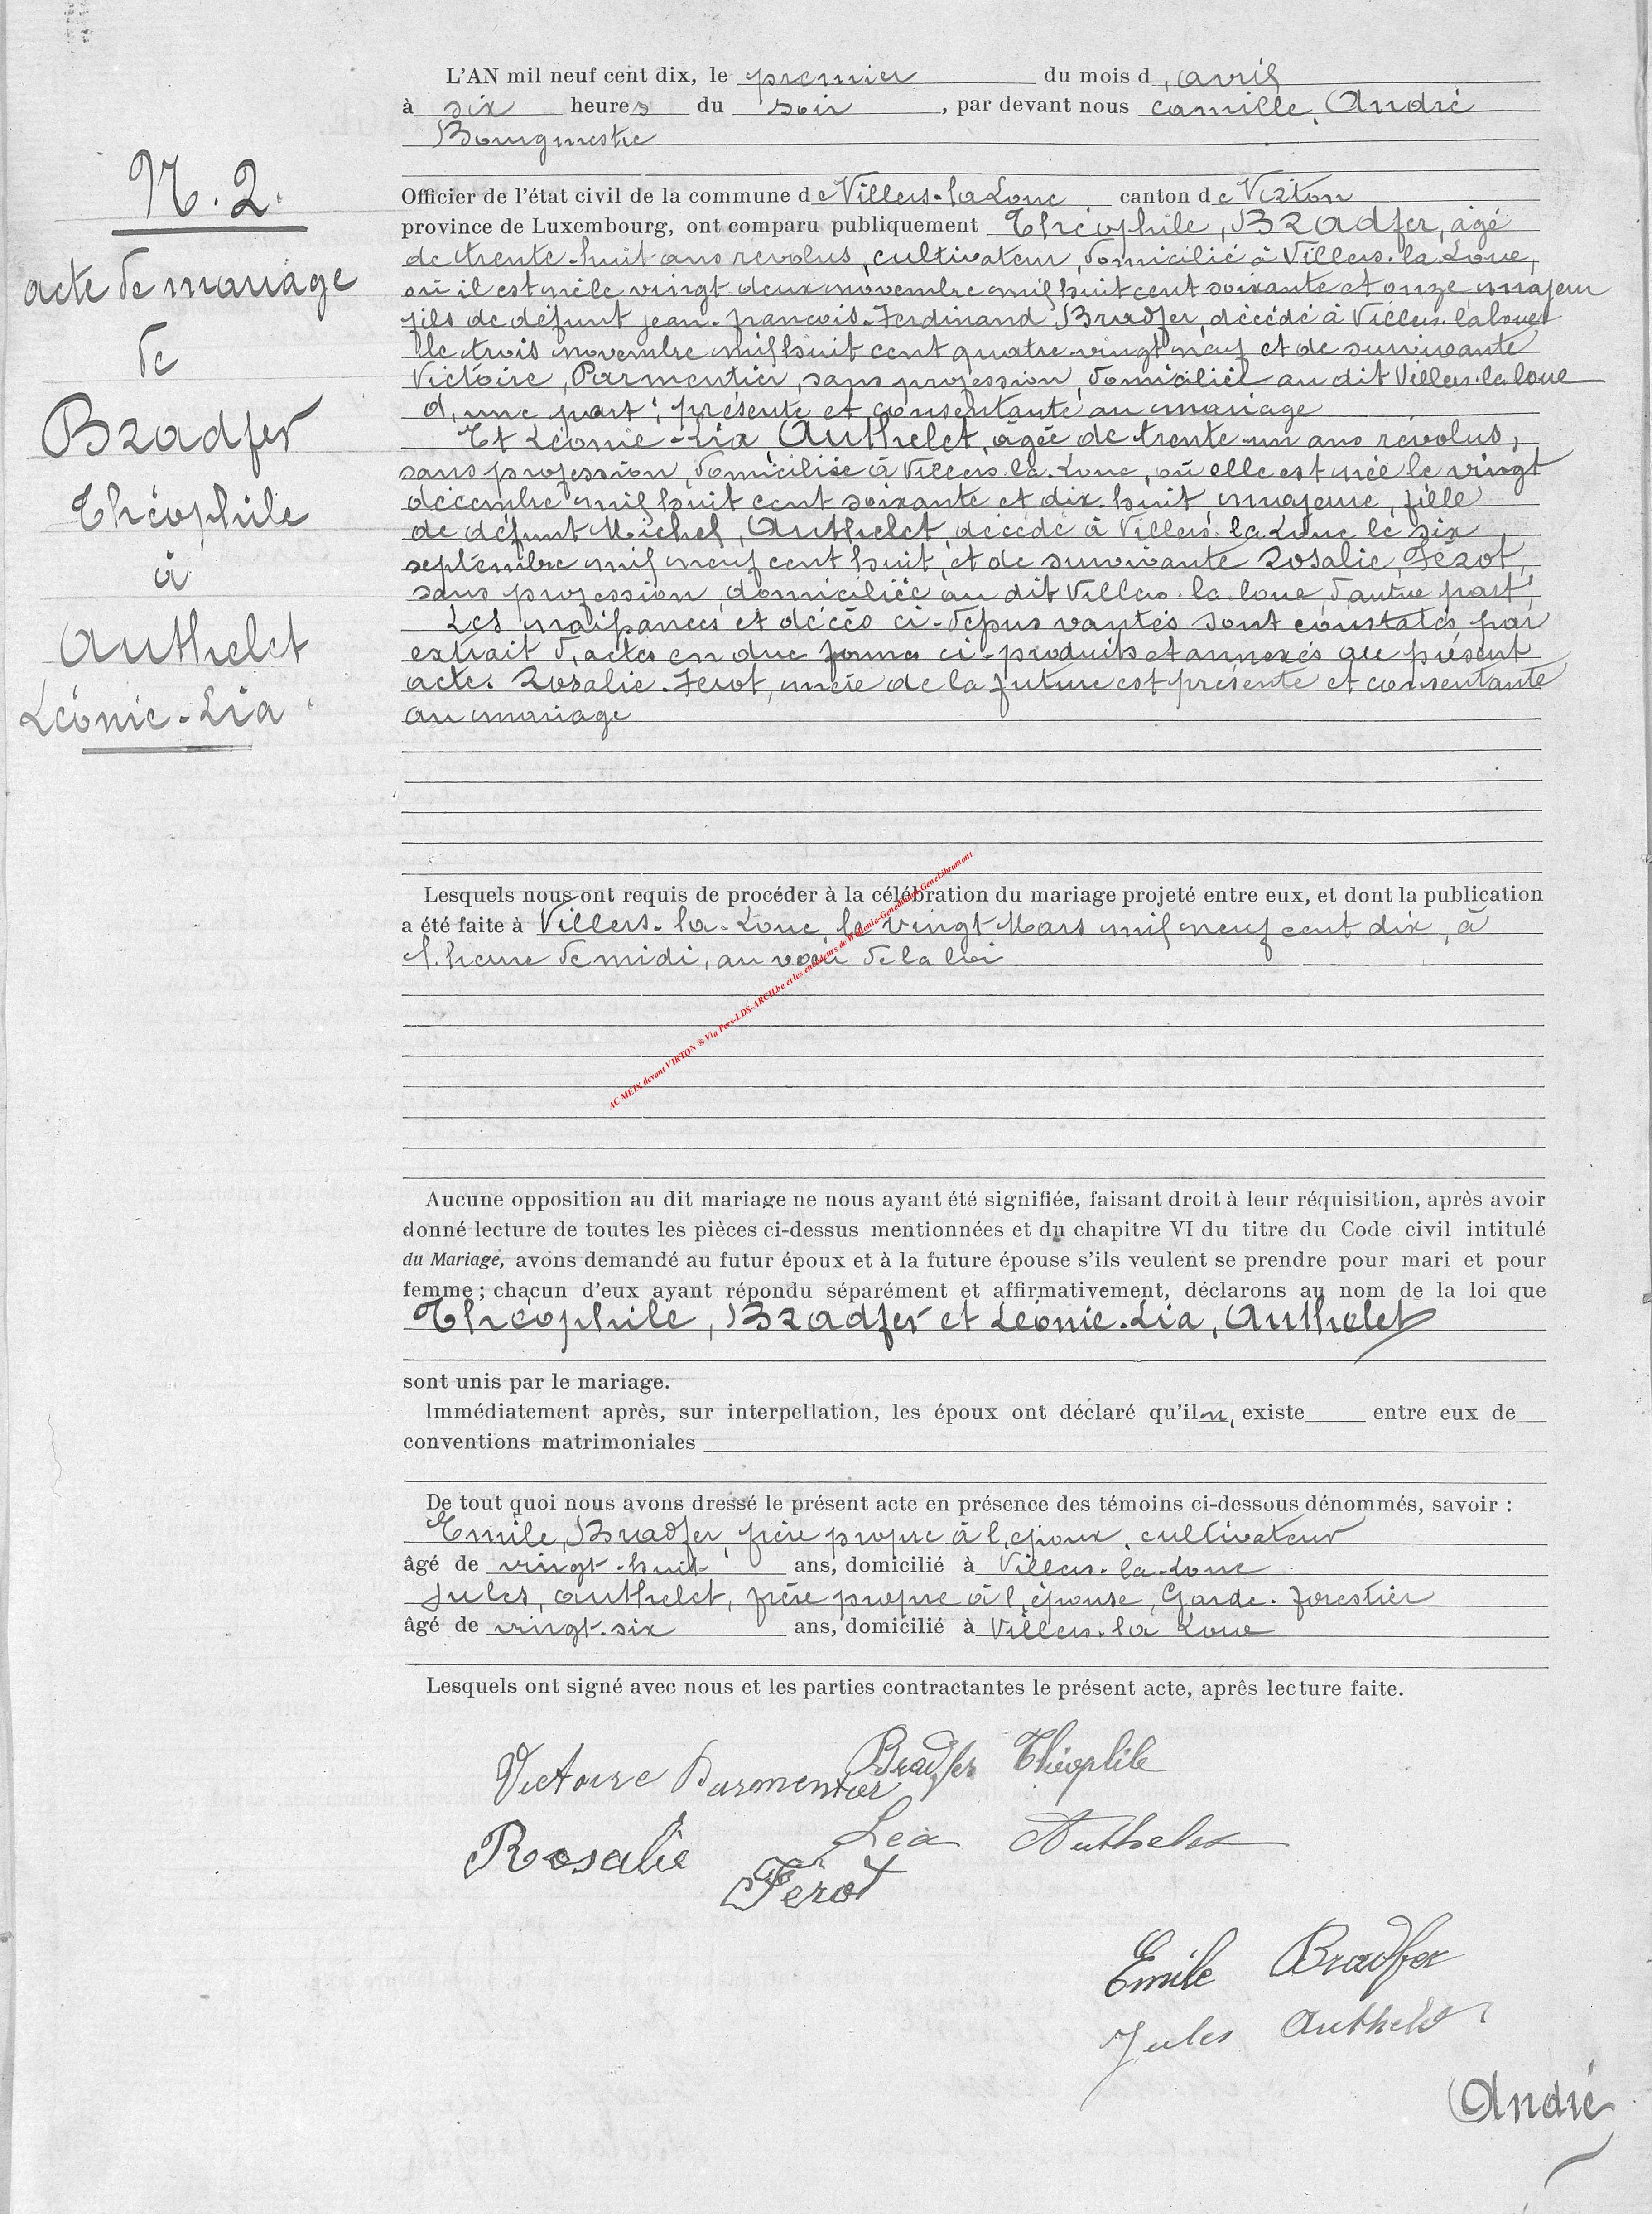 L'AN mil neuf cent dix, le premier du mois d, avril
à six heures du soir, par devant nous Camille, André
Bourgmestre
N. 2.
Officier de l'état civil de la commune de Villers-la-Loue canton de Virton
province de Luxembourg, ont comparu publiquement Théophile, Bradfer, âgé
de trente-huit ans revolus, cultivateur, domicilié à Villers-la-Loue,
acte de mariage
où il est né le vingt deux novembre mil huit cent soixante et onze, majeur
fils de défunt jean-françois-Ferdinand Bradfer, décédé à Villers-la loue
de
le trois novembre mil huit cent quatre-vingt neuf et de survivante
Victoire, Parmentier, sans profession, domiciliée au dit Villers-la loue
Bradfer
d, une part; présente et consentante au mariage
Et Léonie-Lia, Authelet, âgée de trente-un ans révolus,
sans profession, domiciliée à Villers-la-Loue, où elle est née le vingt
Théophile
décembre mil huit cent soixante et dix-huit, majeure, fille
de défunt Michel, Authelet, décédé à Villers-la Loue le six
à
septembre mil neuf cent huit, et de survivante Rosalie Férot,
sans profession, domiciliée au dit Villers-la-loue, d'autre part,
Authelet
Les naissances et décès ci-dessus vantés sont constatés par
extrait d, actes en due forme ci-produits et annexés au présent
acte. Rosalie-Ferot, mère de la future est présente et consentante
Léonie-Lia
au mariage
Lesquels nous ont requis de procéder à la célébration du mariage projeté entre eux, et dont la publication
a été faite à Villers-la-Loue, le vingt Mars mil neuf cent dix, à
l, heure de midi, au vœu de la loi
AC MEIX devant VIRTON ® Via Pers-LDS-ARCH.be et les encodeurs de Wallonia-Geneanum-GeneLibramont
Aucune opposition au dit mariage ne nous ayant été signifiée, faisant droit à leur réquisition, après avoir
donné lecture de toutes les pièces ci-dessus mentionnées et du chapitre VI du titre du Code civil intitulé
du Mariage, avons demandé au futur époux et à la future épouse s'ils veulent se prendre pour mari et pour
femme ; chacun d'eux ayant répondu séparément et affirmativement, déclarons au nom de la loi que
Théophile, Bradfer et Léonie-Lia, Authelet
sont unis par le mariage.
Immédiatement après, sur interpellation, les époux ont déclaré qu'il n, existe entre eux de
conventions matrimoniales
De tout quoi nous avons dressé le présent acte en présence des témoins ci-dessous dénommés, savoir :
Emile, Bradfer, frère propre à l, époux, cultivateur
âgé de vingt-huit ans, domicilié à Villers-la-Loue
Jules, authelet, frère propre à l, épouse, Garde-forestier
âgé de vingt-six ans, domicilié à Villers-la Loue
Lesquels ont signé avec nous et les parties contractantes le présent acte, après lecture faite.
Bradfer Théophile
Victoire Parmentier
Lea Authelet
Rosalie Ferot
Emile Bradfer
Jules Authelet
André